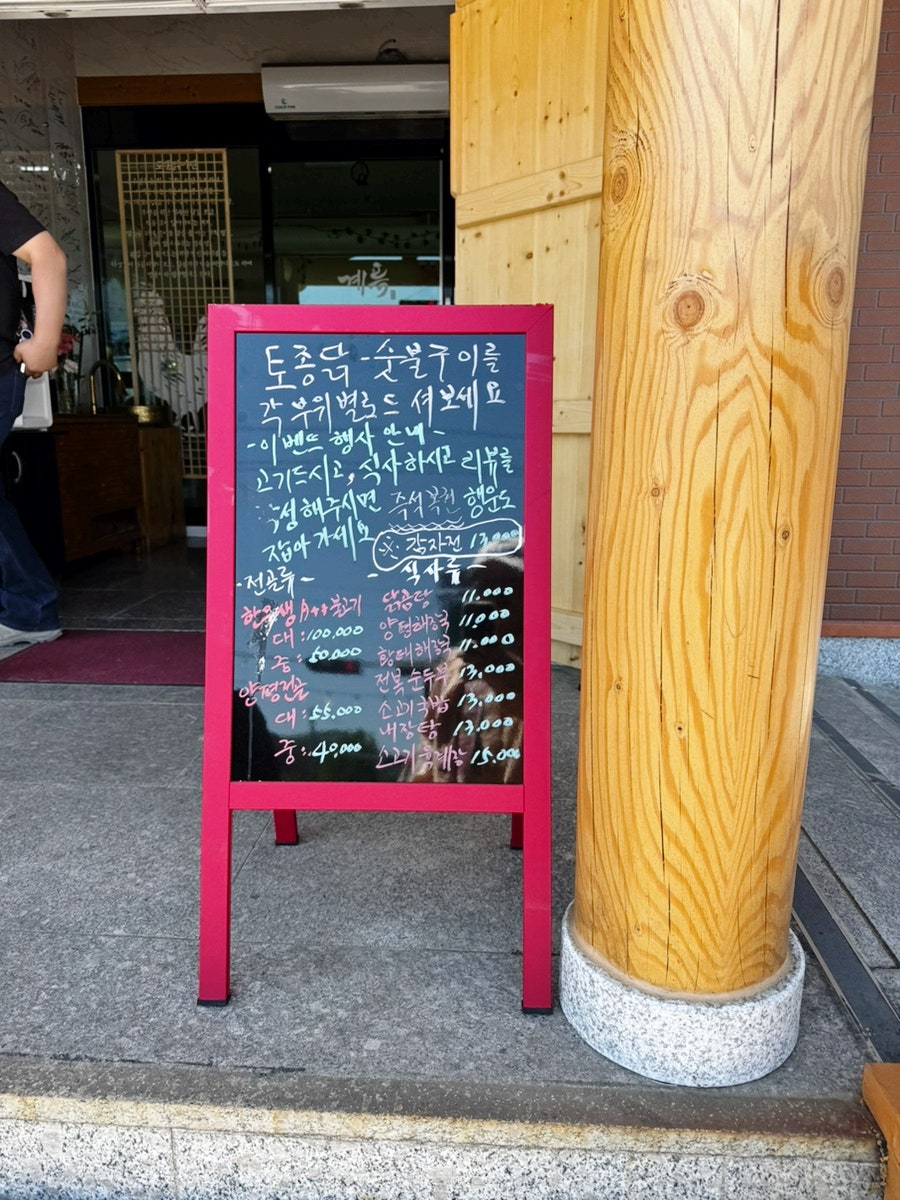 계륵
토종닭-숯불구이를
각 부위별로 드셔보세요
-이벤트 행사 안내-
고기드시고, 식사하시고 리뷰를
작성해주시면 즉석복권 행운도
잡아가세요
※ 감자전 13,000
-전골류-
한우생A++불고기
대:100,000
중:50,000
양평전골
대:55,000
중:40,000
-식사류-
닭곰탕 11.000
양평해장국 11,000
황태해장국 11.000
전복순두부 13,000
소고기국밥 13,000
내장탕 13,000
소고기육개장 15,000